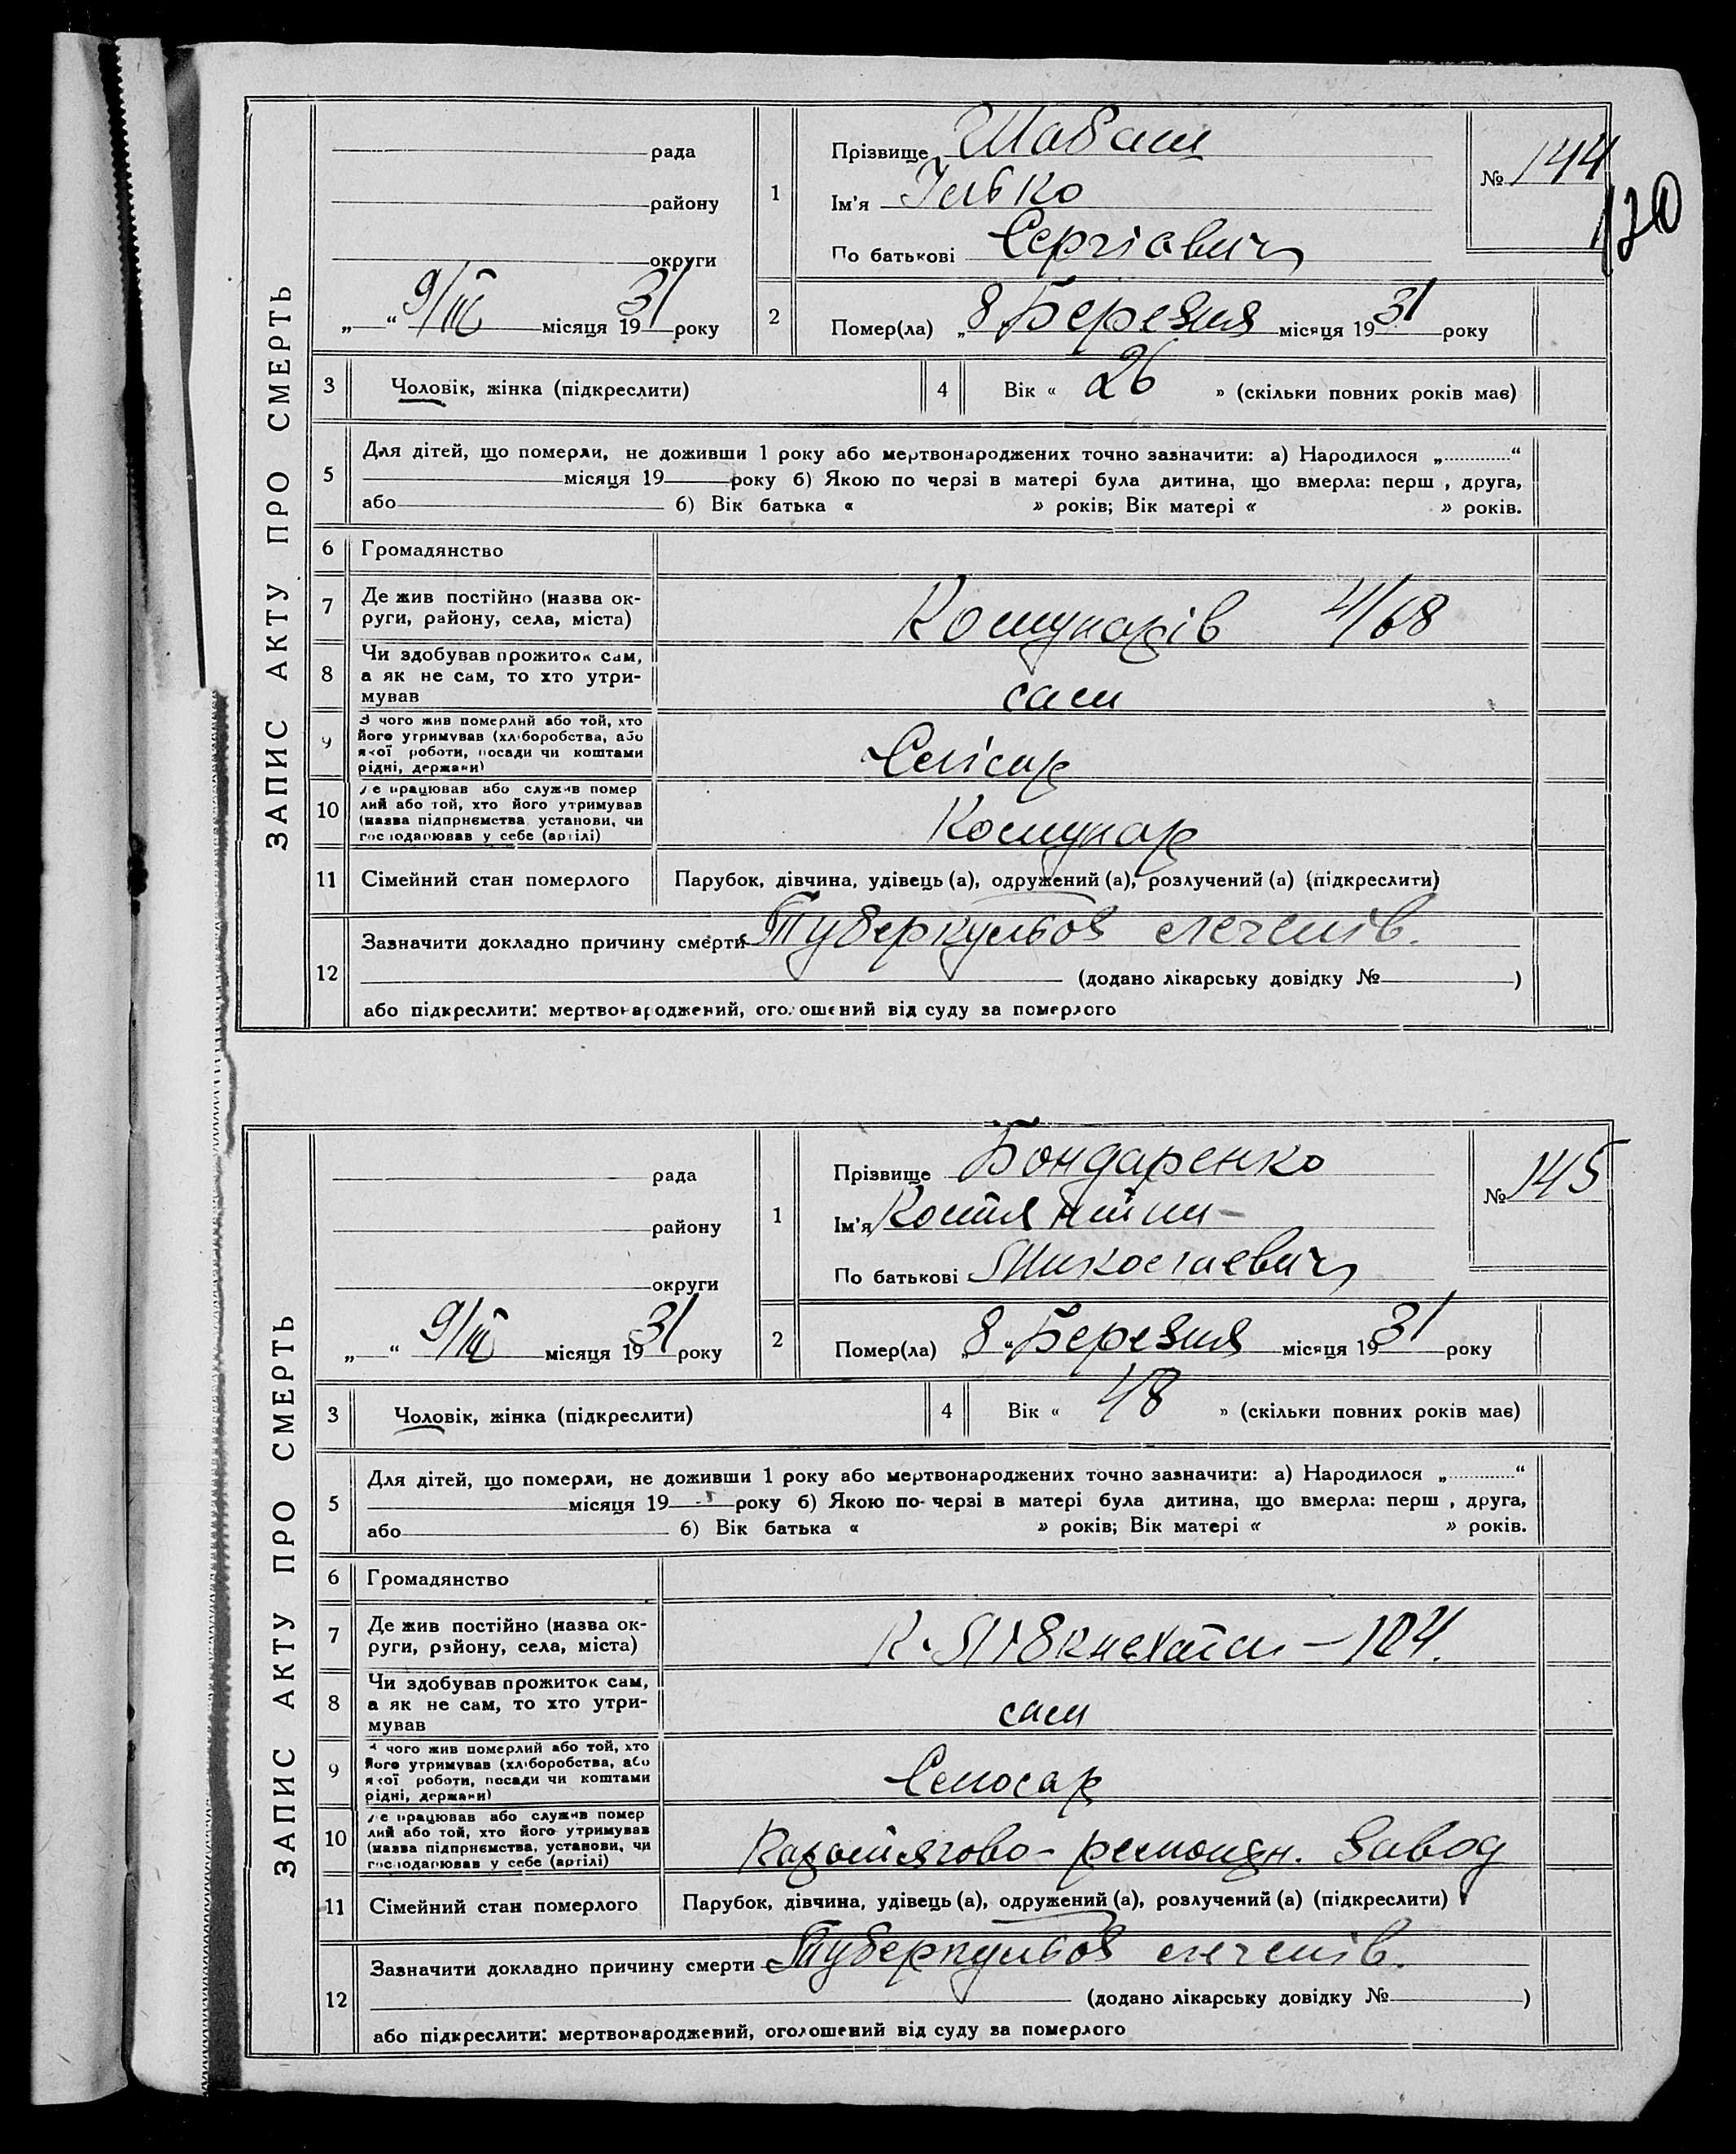 ЗАПИС АКТУ ПРО СМЕРТЬ
рада
району
округи
„ “ 9/III місяця 1931 року
1
Прізвище Шабаш
Ім'я Ілько
По батькові Сергієвич
№ 144
120
2
Помер(ла) „8 Березня місяця 1931 року
3
Чоловік, жінка (підкреслити)
4
Вік « 26 » (скільки повних років має)
5
Для дітей, що померли, не доживши 1 року або мертвонароджених точно зазначити: а) Народилося „............“
місяця 19 року б) Якою по черзі в матері була дитина, що вмерла: перш , друга,
або б) Вік батька « » років; Вік матері « » років.
6
Громадянство
7
Де жив постійно (назва ок-
руги, району, села, міста)
Комунарів 4/68
8
Чи здобував прожиток сам,
а як не сам, то хто утри-
мував
сам
9
З чого жив померлий або той, хто
його утримував (хліборобства, або
якої роботи, посади чи коштами
рідні, держави)
Слісар
10
Де працював або служив помер
лий або той, хто його утримував
(назва підприємства, установи, чи
господарював у себе (артілі)
Комунар
11
Сімейний стан померлого
Парубок, дівчина, удівець (а), одружений (а), розлучений (а) (підкреслити)
12
Зазначити докладно причину смерти Туберкульоз легенів.
(додано лікарську довідку № )
або підкреслити: мертвонароджений, оголошений від суду за померлого
ЗАПИС АКТУ ПРО СМЕРТЬ
рада
району
округи
„ “ 9/III місяця 1931 року
1
Прізвище Бондаренко
Ім'я
По батькові Миколаевич
№ 145
2
Помер(ла) „8“ Березня місяця 1931 року
3
Чоловік, жінка (підкреслити)
4
Вік « 48 » (скільки повних років має)
5
Для дітей, що померли, не доживши 1 року або мертвонароджених точно зазначити: а) Народилося „............“
місяця 19 року б) Якою по черзі в матері була дитина, що вмерла: перш , друга,
або б) Вік батька « » років; Вік матері « » років.
6
Громадянство
7
Де жив постійно (назва ок-
руги, району, села, міста)
К. Лібкнехта – 104.
8
Чи здобував прожиток сам,
а як не сам, то хто утри-
мував
сам
9
З чого жив померлий або той, хто
його утримував (хліборобства, або
якої роботи, посади чи коштами
рідні, держави)
Слюсар
10
Де працював або служив помер
лий або той, хто його утримував
(назва підприємства, установи, чи
господарював у себе (артілі)
завод
11
Сімейний стан померлого
Парубок, дівчина, удівець (а), одружений (а), розлучений (а) (підкреслити)
12
Зазначити докладно причину смерти Туберкульоз легенів.
(додано лікарську довідку № )
або підкреслити: мертвонароджений, оголошений від суду за померлого